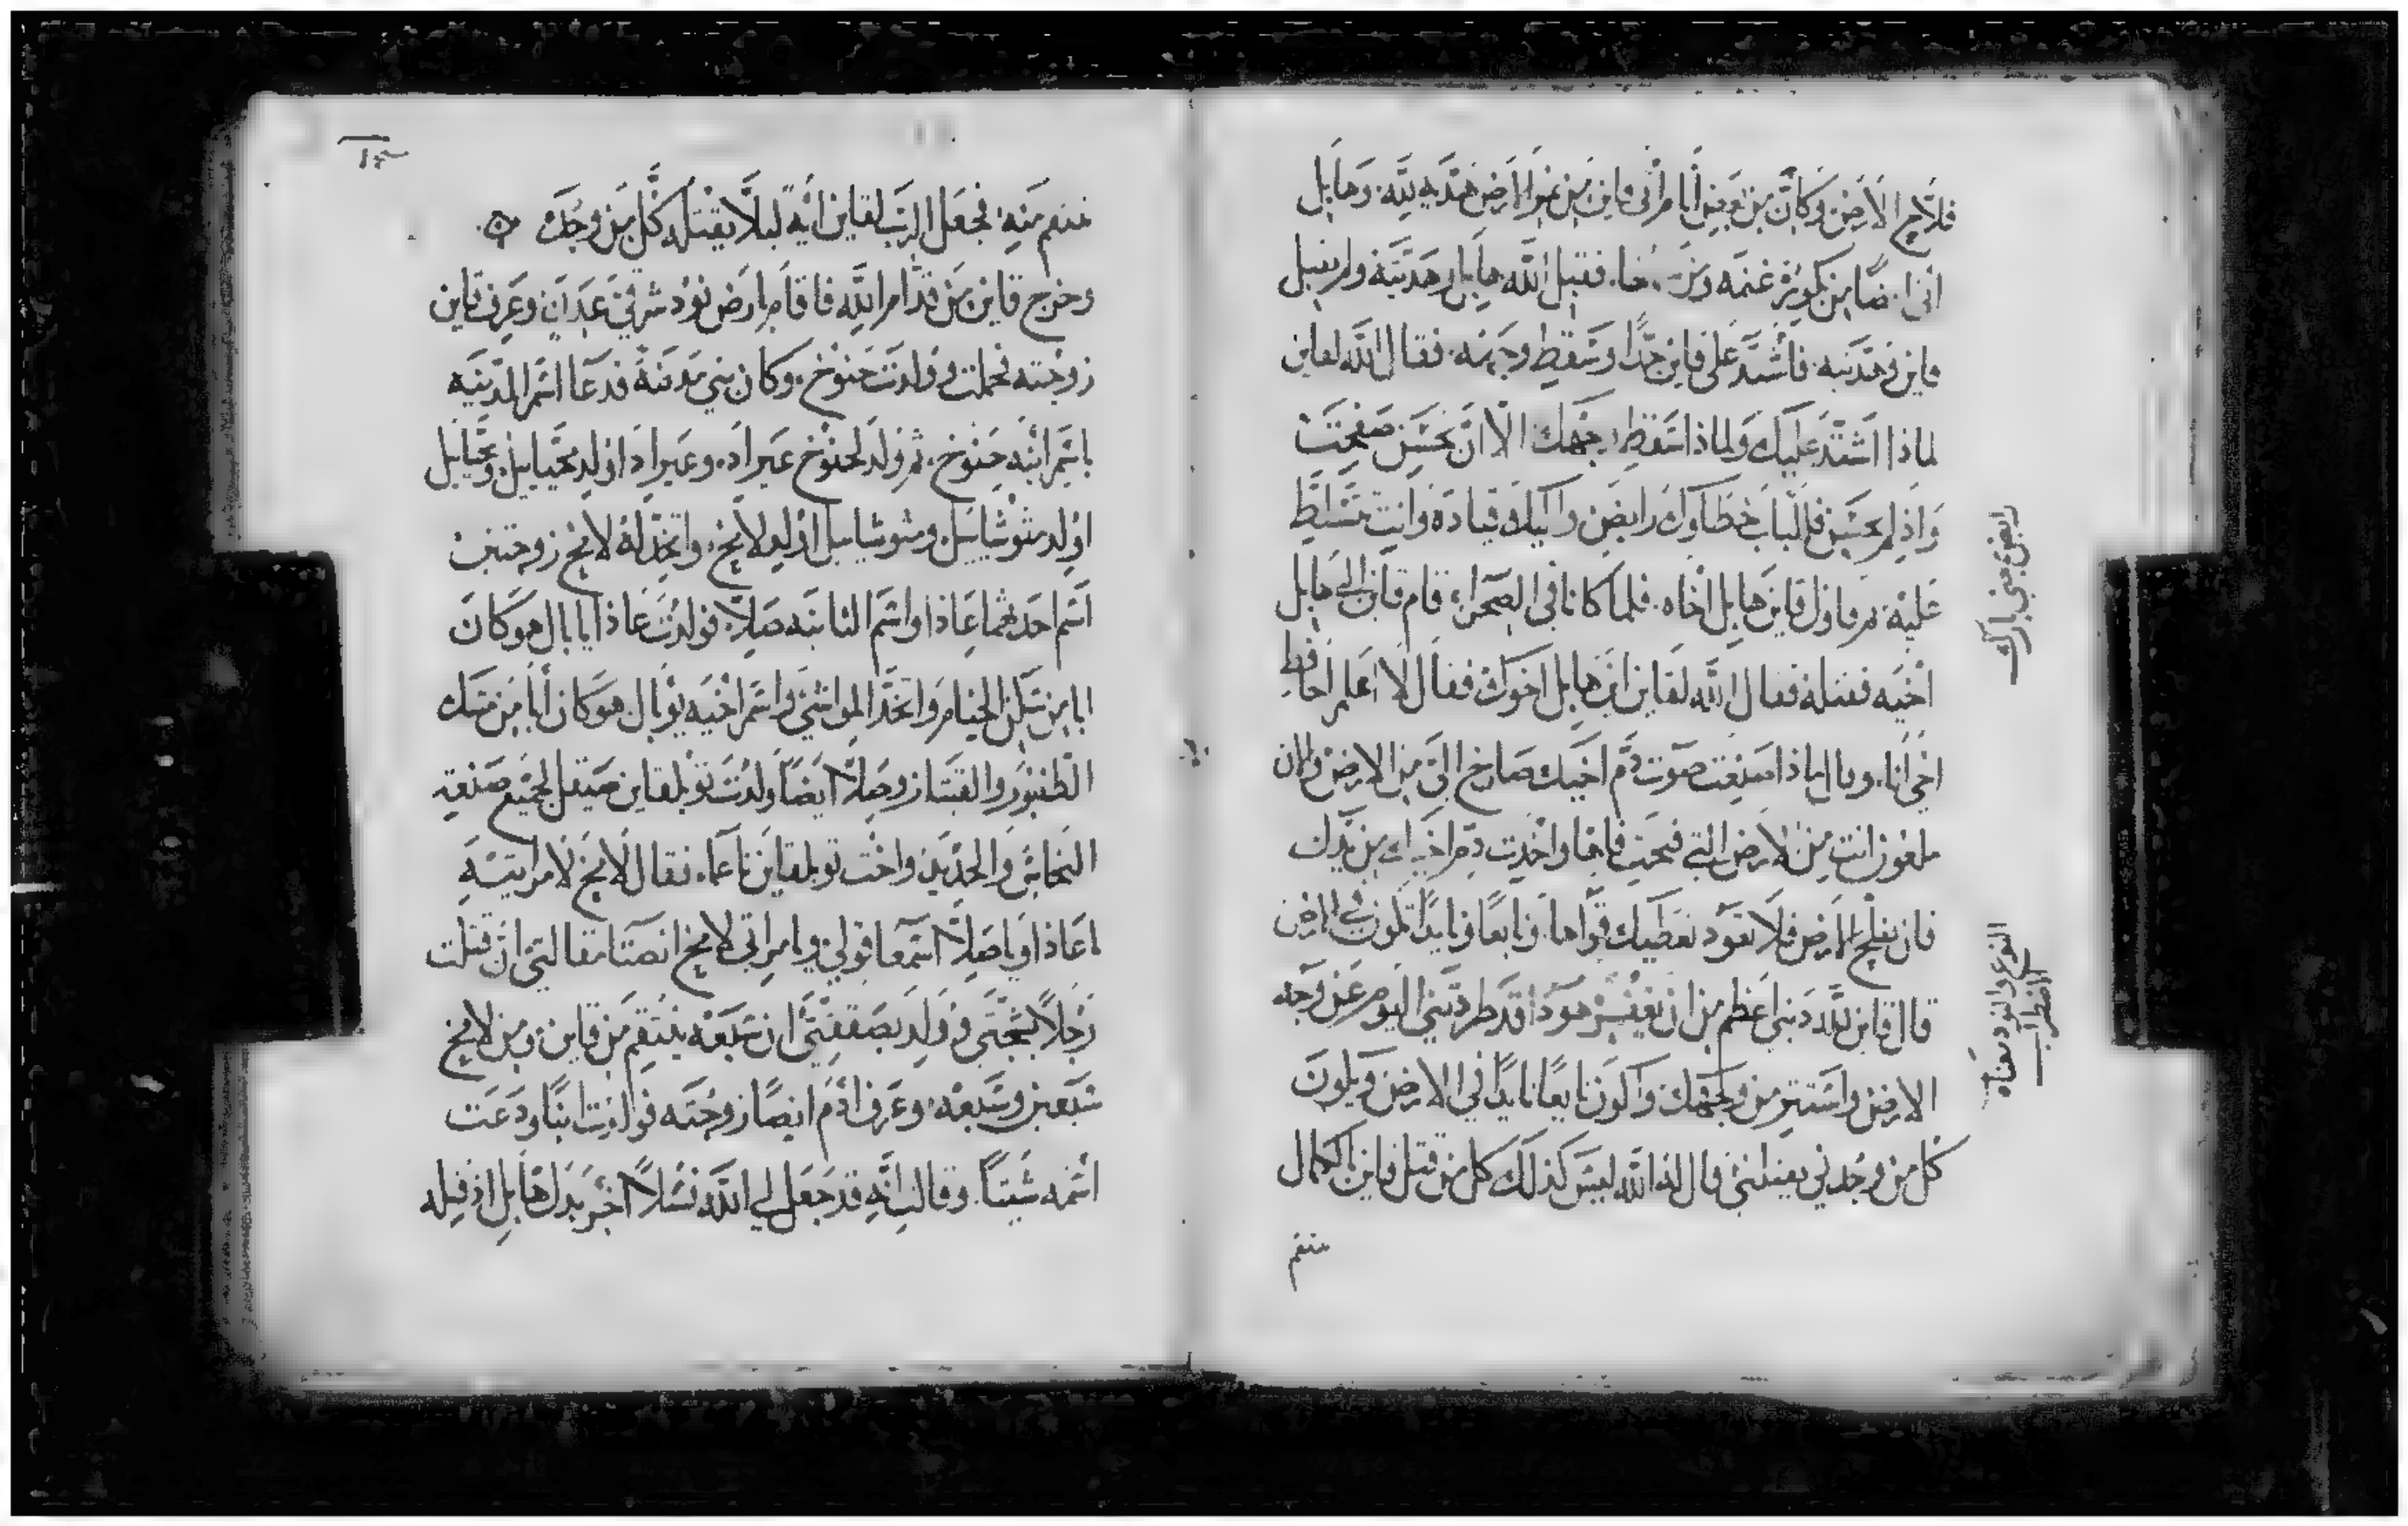 فلاح الارض وكان من بعض أيام أتى قاين من ثمر الارض هديه لله. وهابل
أتى ايضا من بكورة غنمه ومن فقبل الله هابل وهديته ولم يقبل
قاين وهديته. فاشتد على قاين جدا وسقط وجهه. فقال الله لقاين
لماذا اشتد عليك ولماذا سقط وجهك الا ان تحسن صفحت
واذ لم تحسن فللباب خطاوك رابض واليك قيادة وانت مسلط
عليه ثم قاول قاين هابل اخاه. فلما كانا في الصحراء قام قاين الى هابل
اخيه فقتله فقال الله لقاين اين هابل اخوك فقال لا اعلم احافظ
اخي انا. وقال ماذا صنعت صوت دم اخيك صارخ الي من الارض والان
ملعون انت من الارض التي فتحت فاها واخذت دم اخيك من يدك
فان تفلح الارض فلا تعود تعطيك قواها. نايعا ونايدا تكون في الارض
قال قاين لله ذنبي اعظم من ان يغفر هوذا قد طردتني اليوم عن وجه
الارض واستتر من وجهك واكون نايعا نايدا في الارض ويكون
كل من وجدني يقتلني قال له الله ليس كذلك كل من قتل قاين بالكمال
ينتقم
رابض جبي بارك
النوع والنود معناه
اضطراب
ينتقم منه. فجعل الرب لقاين اية ليلا يقتله كل من وجده
وخرج قاين من قدام الله فاقام بارض نود شرقي عدان وعرف قاين
زوجته فحملت وولدت حنوخ. وكان بني مدينة فدعا اسم المدينه
باسم ابنه حنوخ. ثم ولد لحنوخ عيراد. وعيراد اولد محيايل. ومحيايل
اولد متوشاييل. ومتوشاييل اولد لامخ. واتخذ له لامخ زوجتين
اسم احديهما عاذا واسم الثانيه صلا. فولدت عاذا يابال هو كان
ابا من سكن الخيام واتخذ المواشي واسم اخيه يوبال هو كان ابا من مسك
الطنبور والقيتار وصلا ايضا ولدت توبلقاين صيقل لجميع صنعة
النحاس والحديد واخت توبلقاين ناعما. فقال لامخ لامراتيه
ياعاذا وياصلا اسمعا قولي ويا امراتي لامخ انصتا مقالتي ان قتلت
رجلا بشجتي وولد بصفقتي ان سبعه ينتقم من قاين ومن لامخ
سبعين وسبعه. وعرف ادم ايضا زوجته فولدت ابنا ودعت
اسمه شيتا. وقالت انه قد جعل لي الله نسلا اخر بدل هابل اذ قتله